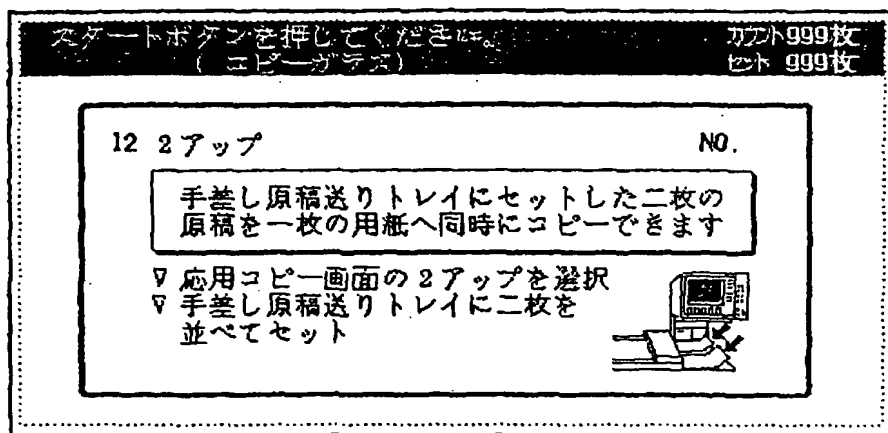 スタートボタンを押してください。 カウント999枚
( コピーガラス) セット 999枚
12 2アップ NO.
手差し原稿送りトレイにセットした二枚の
原稿を一枚の用紙へ同時にコピーできます
▽ 応用コピー画面の2アップを選択
▽ 手差し原稿送りトレイに二枚を
並べてセット